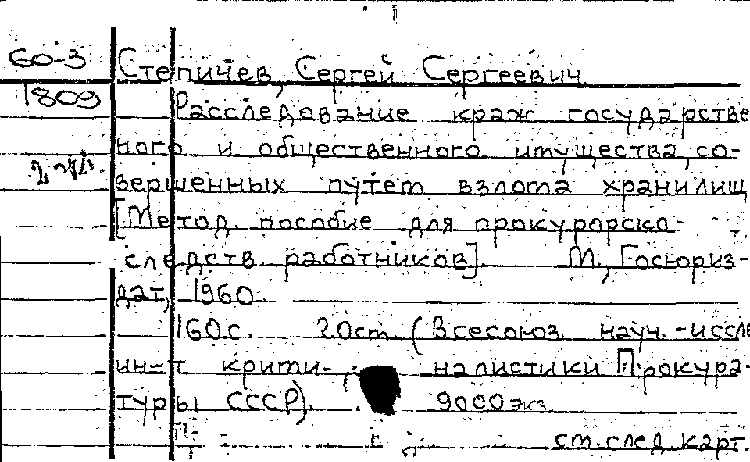 60-3
1809
2 эк.
Степичев, Сергей Сергеевич
Расследование краж государствен
ного и общественного имущества, со-
вершенных путем взлома хранилищ
[Метод. пособие для прокурорско-
следств. работников]. М., Госюриз-
дат, 1960.
160с. 20см (Всесоюз науч.-иссле
ин-т крими- налистики Прокура-
туры СССР). 9000экз
см. след. карт.